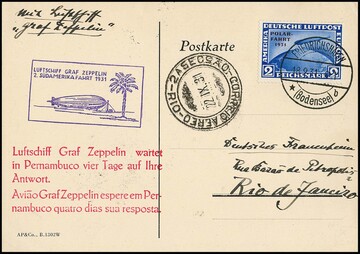 Mit Luftschiff
"Graf Zeppelin"
Postkarte
DEUTSCHE LUFTPOST
EUROPA
AMERIKA
POLAR-
FAHRT
1931
2 REICHSMARK 2
FRIEDRICHSHAFEN
(Bodensee)
LUFTSCHIFF GRAF ZEPPELIN
2. SÜDAMERIKAFAHRT 1931
CORREIO AEREO
22 IX 31
Luftschiff Graf Zeppelin wartet
in Pernambuco vier Tage auf Ihre
Antwort.
Avião Graf Zeppelin espere em Per-
nambuco quatro dias sua resposta.
Deutsches Frauenheim
Rua Barão de Petropolis
Rio de Janeiro
AP&Co., B.1202W